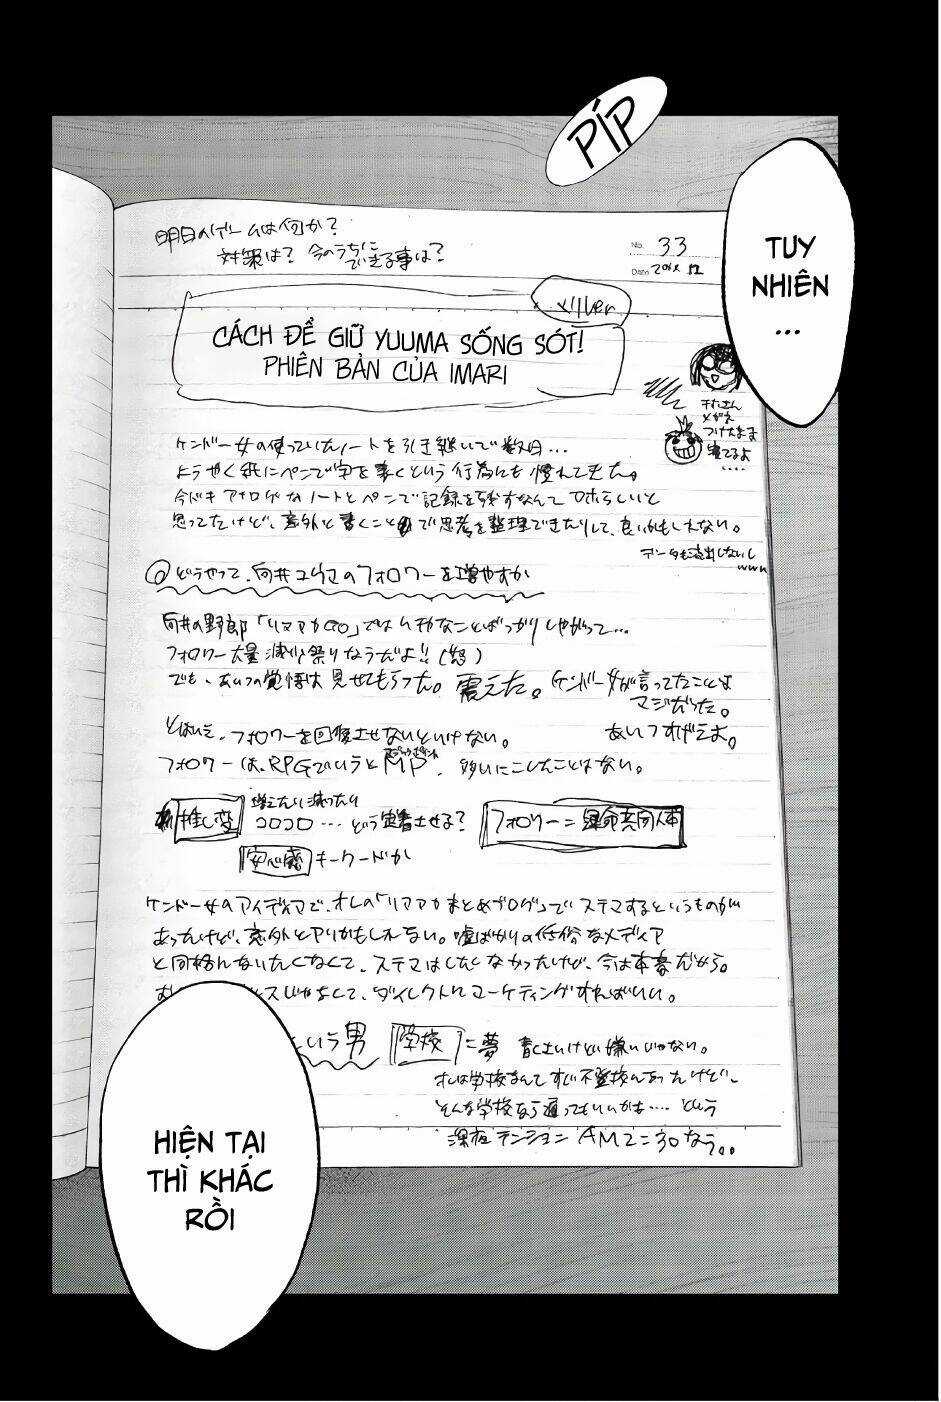 PÍP
TUY
NHIÊN
...
明日のゲームは何か?
対策は? 今のうちに
できる事は?
No. 33
Date
xilver
CÁCH ĐỂ GIỮ YUUMA SỐNG SÓT!
PHIÊN BẢN CỦA IMARI
メガネ
つけたまま
寝てるよ
....
ケンドー女の使っていたノートを引き継いで数日...
ようやく紙にペンで字を書くという行為にも慣れてきた。
今ドキアナログなノートとペンで記録を残すなんてアホらしいと
思ってたけど、意外と書くことで思考を整理できたりして、良いかもしれない。
データも流出しないし
www
◎どうやって、向井ユウマのフォロワーを増やすか
向井の野郎「リアアカGO」ではムチャなことばっかりしやがって...
フォロワー大量減少祭りなうだよ!!(怒)
でも、あいつの覚悟は見せてもらった。震えた。ケンドー女が言ってたことは
マジだった。
あいつすげえよ。
とはいえ、フォロワーを回復させないといけない。
フォロワーは、RPGでいうとMP、多いにこしたことはない。
推し変
増えたり減ったり
コロコロ...どう定着させよ?
フォロワー=運命共同体
安心感 キーワードか
ケンドー女のアイディアで、オレの「リアアカまとめブログ」でステマするというものが
あったけど、意外とアリかもしれない。嘘ばかりの低俗なメディア
と同格になりたくなくて、ステマはしたくなかったけど、今は本番だから。
スじゃなくて、ダイレクトにマーケティングすればいい。
という男 学校に夢 青くさいけど嫌いじゃない。
オレは学校なんてすぐ不登校になったけど、
そんな学校なら通ってもいいかな.... という
深夜テンション AM2:30なう。。
HIỆN TẠI
THÌ KHÁC
RỒI